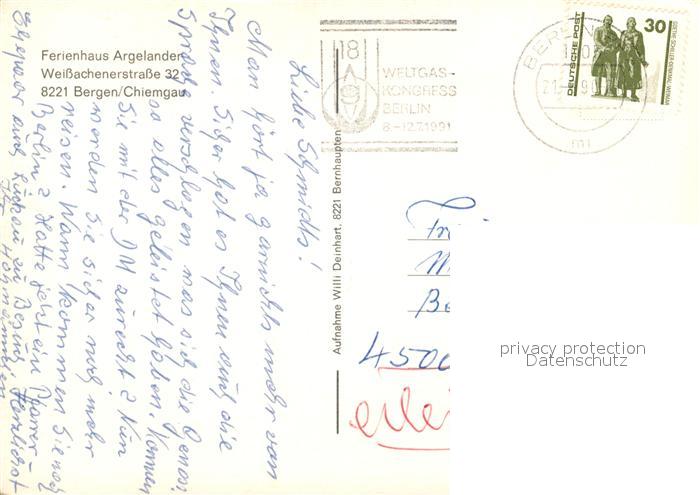 Ferienhaus Argelander
Weißachenerstraße 32
8221 Bergen/Chiemgau
Liebe Schmidts!
Man hört ja garnichts mehr von
Ihnen. Sicher hat es Ihnen auch die
Sprache verschlagen was sich die Genoss.
so alles geleistet haben. Kommen
Sie mit der DM zurecht? Nun
werden Sie sicher noch mehr
reisen. Wann kommen Sie nach
Berlin? Hatte jetzt ein Pfarrer-
Ehepaar aus zu Besuch. Herzlichst
Ihre
Aufnahme Willi Deinhart, 8221 Bernhaupten
18
WELTGAS-
KONGRESS
BERLIN
8.-12.7.1991
BERLIN
DEUTSCHE POST
30
GOETHE-SCHILLER-DENKMAL, WEIMAR
4500
privacy protection
Datenschutz